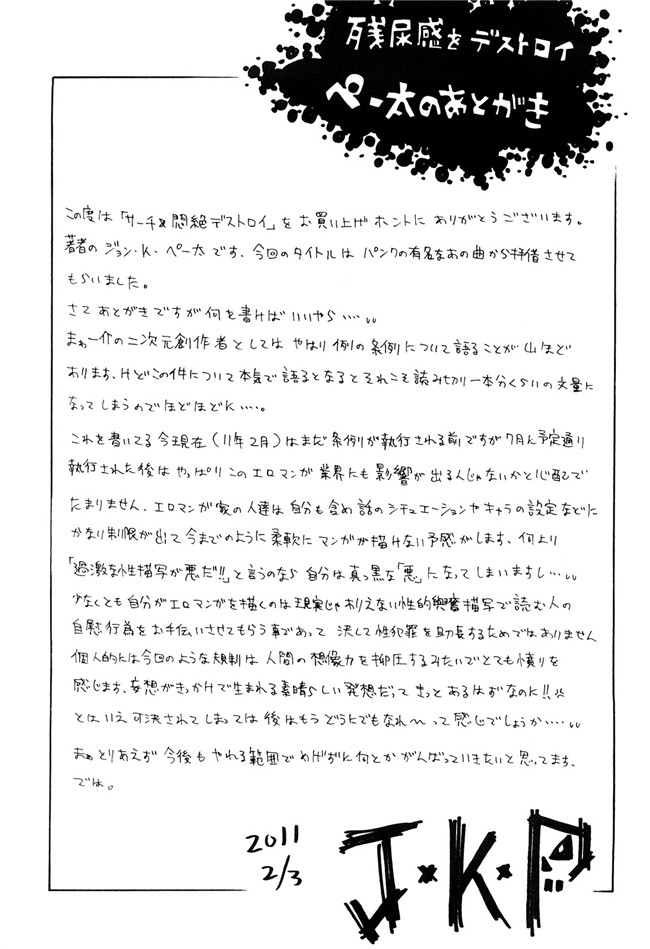 残尿感をデストロイ
ペー太のあとがき
この度は「サーチ&悶絶デストロイ」をお買い上げホントにありがとうございます。
著者のジョン・K・ペー太です、今回のタイトルはパンクの有名なあの曲から拝借させて
もらいました。
さてあとがきですが何を書けばいいやら・・・・
まぁ一介の二次元創作者としてはやはり例の条例について語ることが山ほど
あります、けどこの件について本気で語るとなるとそれこそ読み切り一本分くらいの文量に
なってしまうのでほどほどに・・・・。
これを書いてる今現在(11年2月)はまだ条例が執行される前ですが7月に予定通り
執行された後はやっぱりこのエロマンガ業界にも影響が出るんじゃないかと心配で
たまりません、エロマンガ家の人達は自分も含め話のシチュエーションやキャラの設定などに
かなり制限が出て今までのように柔軟にマンガが描けない予感がします、何より
「過激な性描写が悪だ!!」と言うのなら自分は真っ黒な「悪」になってしまいますし・・・
少なくとも自分がエロマンガを描くのは現実じゃありえない性的興奮描写で読む人の
自慰行為をお手伝いさせてもらう事であって決して性犯罪を助長するためではありません
個人的には今回のような規制は人間の想像力を抑圧するみたいでとても憤りを
感じます、妄想がきっかけで生まれる素晴らしい発想だってきっとあるはずなのに!!
とはいえ可決されてしまっては後はもうどうにでもなれ〜って感じでしょうか・・・・
まぁとりあえず今後もやれる範囲でめげずに何とかがんばっていきたいと思ってます、
では。
2011
2/3
J・K・P